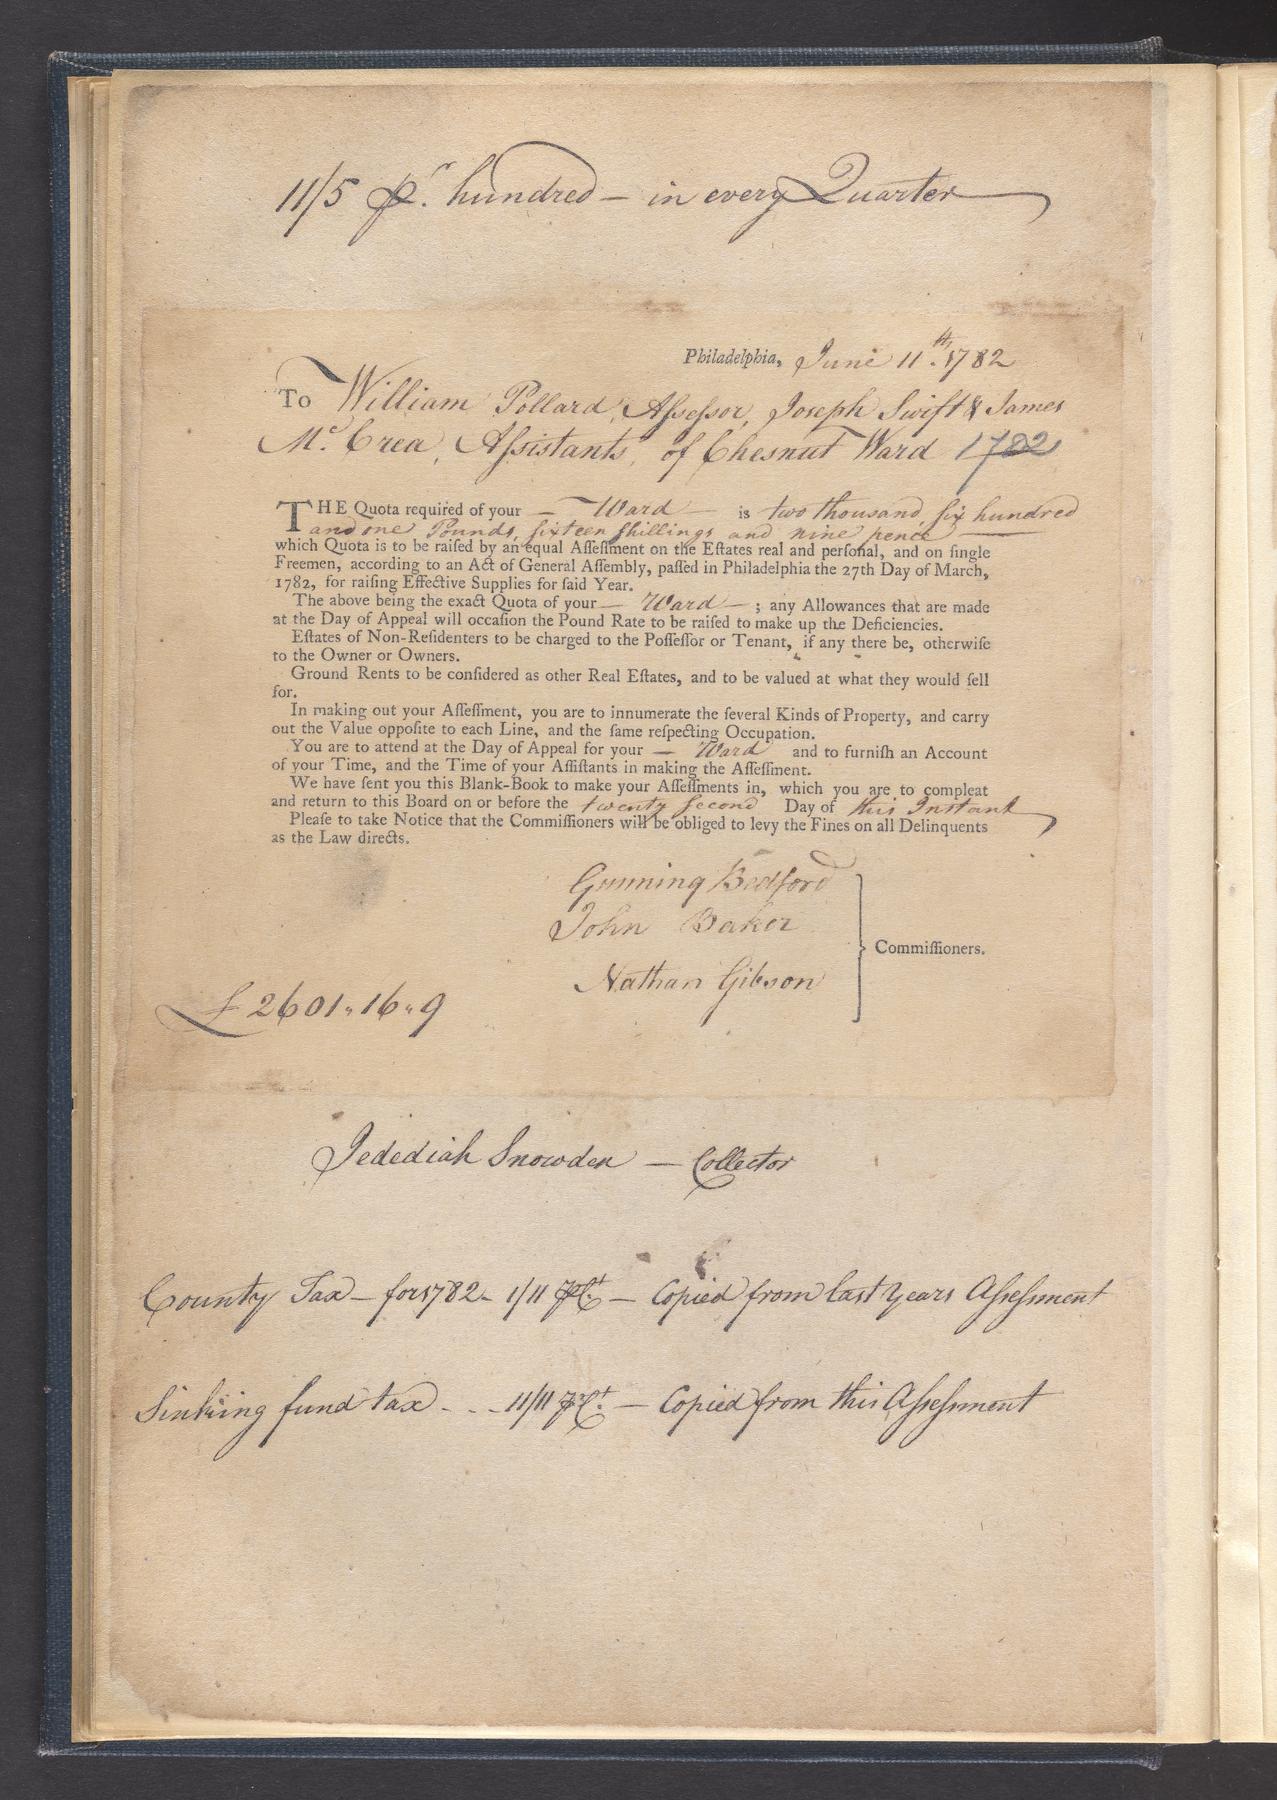 11/5 pr. hundred — in every Quarter
Philadelphia, June 11th. 1782
To William Pollard, Aſseſsor, Joseph Swift & James
Mc. Crea, Aſsistants, of Chesnut Ward 1782
THE Quota required of your — Ward — is two thousand, six hundred
and one Pounds, sixteen shillings and nine pence —
which Quota is to be raiſed by an equal Aſſeſſment on the Eſtates real and perſonal, and on ſingle
Freemen, according to an Act of General Aſſembly, paſſed in Philadelphia the 27th Day of March,
1782, for raiſing Effective Supplies for ſaid Year.
The above being the exact Quota of your — Ward — ; any Allowances that are made
at the Day of Appeal will occaſion the Pound Rate to be raiſed to make up the Deficiencies.
Eſtates of Non-Reſidenters to be charged to the Poſſeſſor or Tenant, if any there be, otherwiſe
to the Owner or Owners.
Ground Rents to be conſidered as other Real Eſtates, and to be valued at what they would ſell
for.
In making out your Aſſeſſment, you are to innumerate the ſeveral Kinds of Property, and carry
out the Value oppoſite to each Line, and the ſame reſpecting Occupation.
You are to attend at the Day of Appeal for your — Ward and to furniſh an Account
of your Time, and the Time of your Aſſiſtants in making the Aſſeſſment.
We have ſent you this Blank-Book to make your Aſſeſſments in, which you are to compleat
and return to this Board on or before the twenty second Day of this Instant
Pleaſe to take Notice that the Commiſſioners will be obliged to levy the Fines on all Delinquents
as the Law directs.
Gunning Bedford
John Baker
Nathan Gibson
Commiſſioners.
£2601„16„9
Jedediah Snowden — Collector
County Tax — for 1782 — 1/11 pr Ct — Copied from last years Aſseſsment
Sinking fund tax - - - 11/11 pr Ct. — Copied from this Aſseſsment